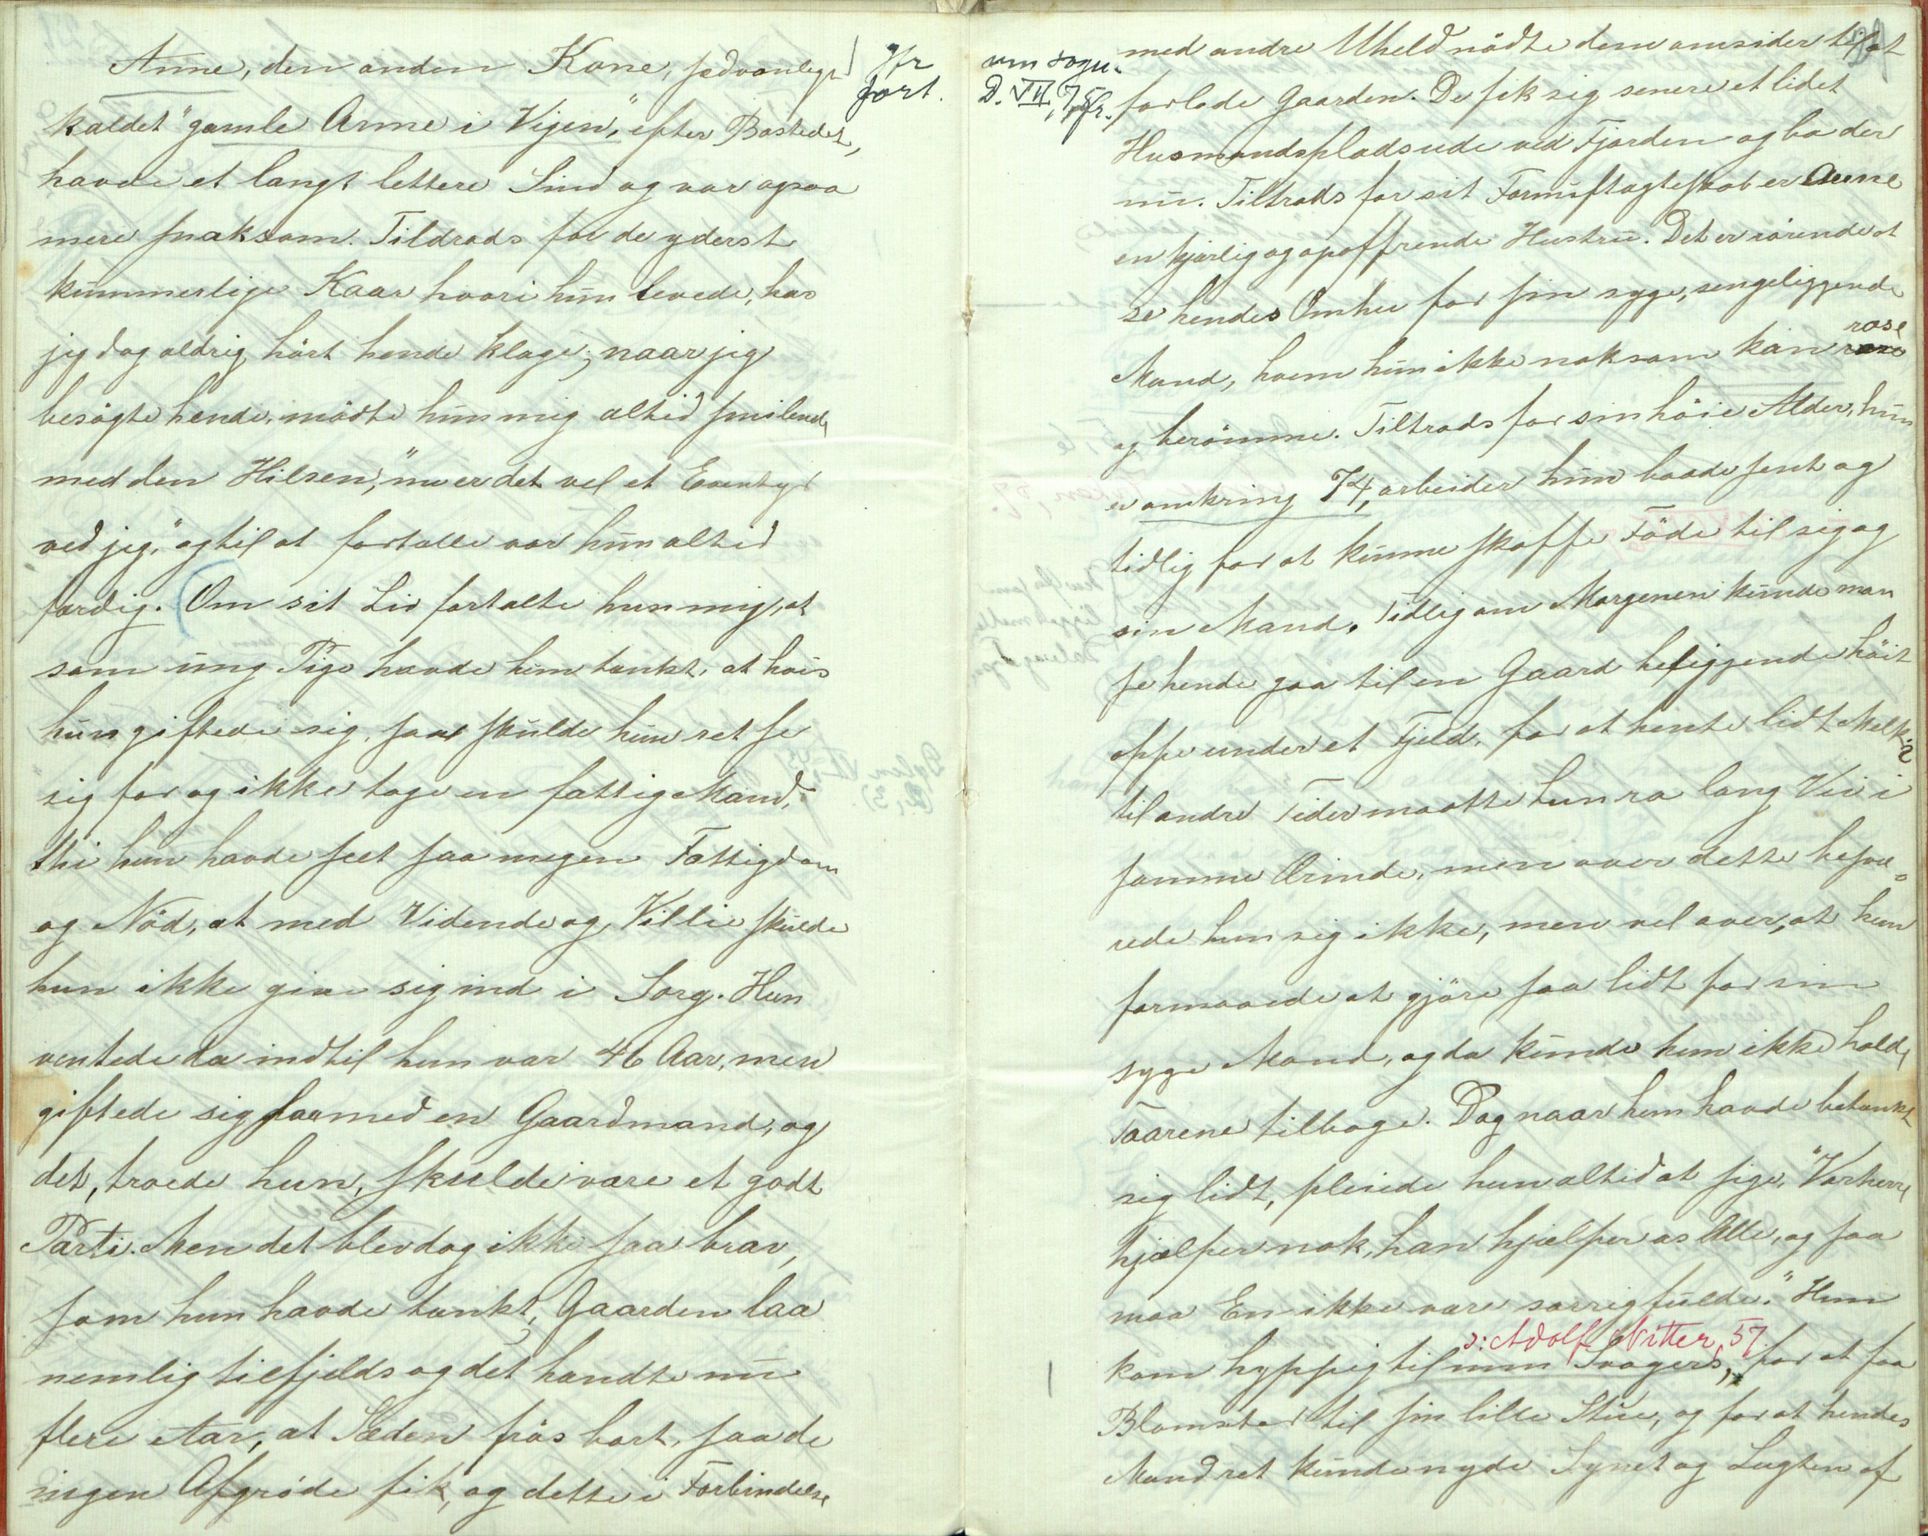 Anne, den anden Kone, sædvanligt
kaldet "gamle Anne i Vigen," efter Bostedet,
havde et langt lettere Sind og var ogsaa
mere snaksom. Tildrods for de yderst
kummerlige Kaar hvori hun levede, har
jeg dog aldrig hört hende klage; naar jeg
besögte hende, mödte hun mig altid smilende
med den Hilsen, "nu er det vel et Eventyr
ved jeg," og til at fortælle var hun altid
færdig. (Om sit Liv fortalte hun mig, at
som ung Pige havde hun tænkt, at hvis
hun giftede sig, saa skulde hun ret se
sig for og ikke tage en fattig Mand,
thi hun havde seet saa megen Fattigdom
og Nöd, at med Vidende og Villie skulde
hun ikke give sig ind i Sorg. Hun
ventede da indtil hun var 46 Aar, men
giftede sig saa med en Gaardmand, og
det, troede hun, skulde være et godt
Parti. Men det blev dog ikke saa brav,
som hun havde tænkt, Gaarden laa
nemlig tilfjelds og det hændte nu
flere Aar, at Sæden frös bort, saa de
ingen Afgröde fik, og dette i Forbindelse
gfr
fort.
om sogn.
D. VII, 75 fr.
med andre Uheld nödte dem omsider til at
forlade Gaarden. De fik sig senere et lidet
Husmandsplads ude ved Fjorden og bo der
nu. Tiltrods for sit Fornuftægteskab er Anne
en kjærlig og opoffrende Hustru. Det er rörende at
se hendes Omhu for sin syge, sengeliggende
Mand, hvem hun ikke noksom kan rose
og berömme. Tiltrods for sin höie Alder, hun
er omkring 74, arbeider hun baade sent og
tidlig for at kunne skaffe Föde til sig og
sin Mand. Tidlig om Morgenen kunde man
se hende gaa til en Gaard beliggende höit
oppe under et Fjeld, for at hente lidt Melk;
til andre Tider maatte hun ro lang Vei i
samme Ærinde, men over dette besvæ-
rede hun sig ikke, men vel over, at hun
formaaede at gjöre saa lidt for sin
syge Mand, og da kunde hun ikke holde
Taarene tilbage. Dog naar hun havde betænkt
sig lidt, pleiede hun altid at sige, "Vorherre
hjælper nok, han hjælper os Alle, og saa
maa En ikke være sorrigfulde." Hun
ɔ: Adolf Nitter, 57
kom hyppig til min Svogers, for at faa
Blomster til sin lille Stue, og for at hendes
Mand ret kunde nyde Synet og Lugten af